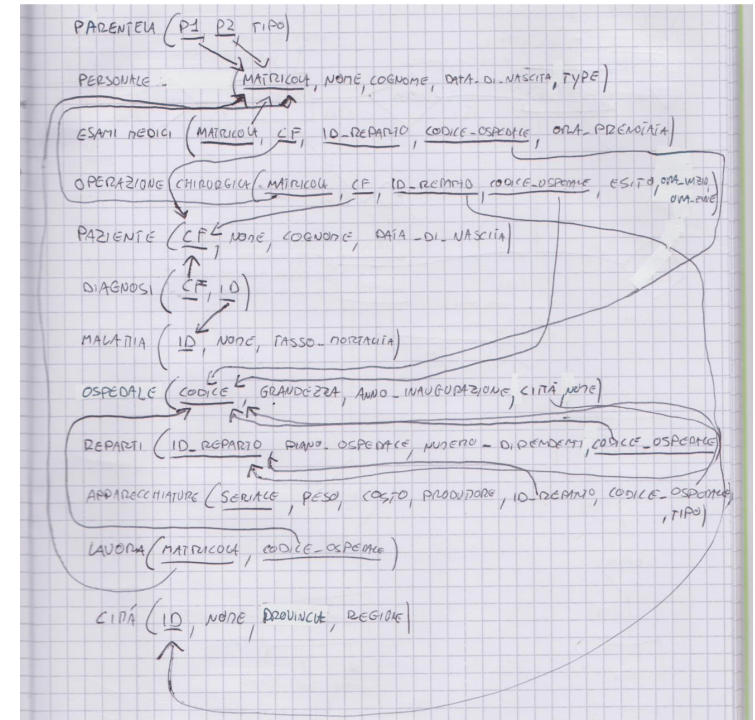 PARENTELA (P1, P2, TIPO)
PERSONALE (MATRICOLA, NOME, COGNOME, DATA_DI_NASCITA, TYPE)
ESAMI MEDICI (MATRICOLA, CF, ID_REPARTO, CODICE_OSPEDALE, ORA_PRENOTATA)
OPERAZIONE CHIRURGICA (MATRICOLA, CF, ID_REPARTO, CODICE_OSPEDALE, ESITO, ORA_INIZIO,
ORA_FINE)
PAZIENTE (CF, NOME, COGNOME, DATA_DI_NASCITA)
DIAGNOSI (CF, ID)
MALATTIA (ID, NOME, TASSO_MORTALITA)
OSPEDALE (CODICE, GRANDEZZA, ANNO_INAUGURAZIONE, CITTÀ, NOME)
REPARTI (ID_REPARTO, PIANO_OSPEDALE, NUMERO_DIPENDENTI, CODICE_OSPEDALE)
APPARECCHIATURE (SERIALE, PESO, COSTO, PRODUTTORE, ID_REPARTO, CODICE_OSPEDALE
, TIPO)
LAVORA (MATRICOLA, CODICE_OSPEDALE)
CITTÀ (ID, NOME, PROVINCIA, REGIONE)